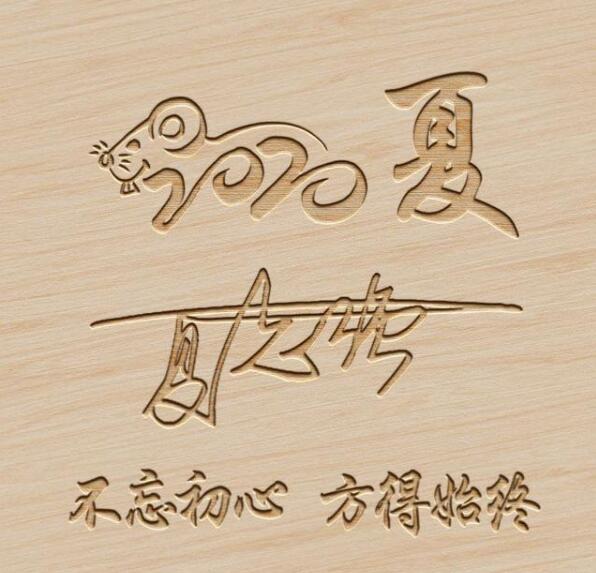 2020 夏
不忘初心 方得始终